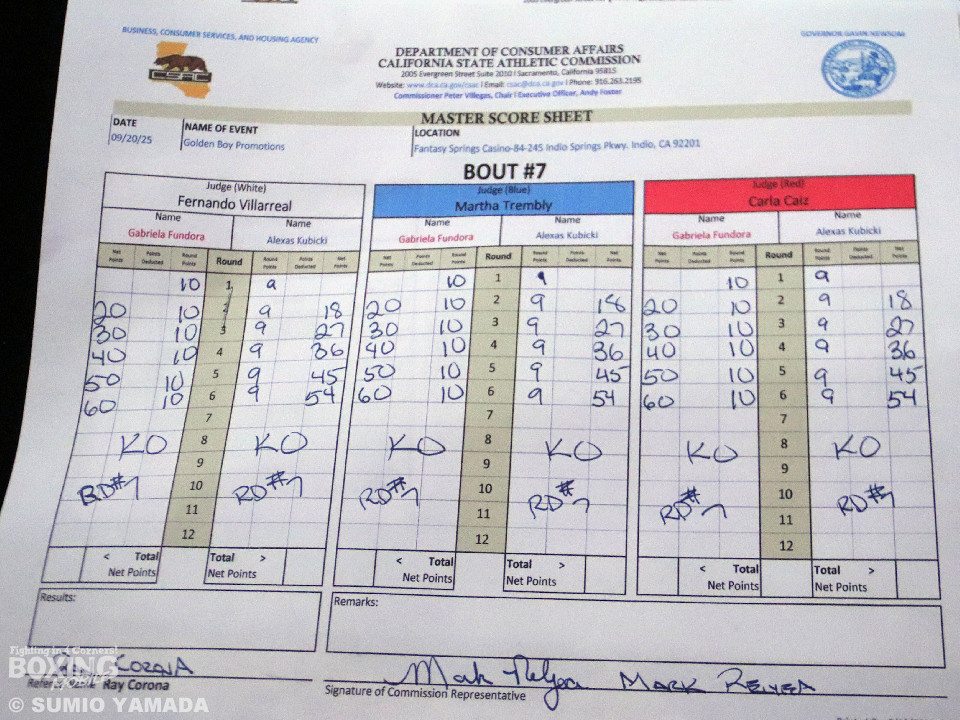 BUSINESS, CONSUMER SERVICES, AND HOUSING AGENCY
GOVERNOR GAVIN NEWSOM
DEPARTMENT OF CONSUMER AFFAIRS
CALIFORNIA STATE ATHLETIC COMMISSION
2005 Evergreen Street Suite 2010 | Sacramento, California 95815
Website: www.dca.ca.gov/csac | Email: csac@dca.ca.gov | Phone: 916.263.2195
Commissioner Peter Villegas, Chair | Executive Officer, Andy Foster
CSAC
MASTER SCORE SHEET
DATE NAME OF EVENT LOCATION
09/20/25 Golden Boy Promotions Fantasy Springs Casino-84-245 Indio Springs Pkwy. Indio, CA 92201
BOUT #7
Judge (White) Judge (Blue) Judge (Red)
Fernando Villarreal Martha Trembly Carla Caiz
Name Name Name Name Name Name
Gabriela Fundora Alexas Kubicki Gabriela Fundora Alexas Kubicki Gabriela Fundora Alexas Kubicki
Net Points Points Deducted Round Points Round Round Points Points Deducted Net Points Net Points Points Deducted Round Points Round Round Points Points Deducted Net Points Net Points Points Deducted Round Points Round Round Points Points Deducted Net Points
10 1 9 10 1 9 10 1 9
20 10 2 9 18 20 10 2 9 18 20 10 2 9 18
30 10 3 9 27 30 10 3 9 27 30 10 3 9 27
40 10 4 9 36 40 10 4 9 36 40 10 4 9 36
50 10 5 9 45 50 10 5 9 45 50 10 5 9 45
60 10 6 9 54 60 10 6 9 54 60 10 6 9 54
7 7 7
KO 8 KO KO 8 KO KO 8 KO
9 9 9
RD#7 10 RD#7 RD#7 10 RD#7 RD#7 10 RD#7
11 11 11
12 12 12
< Total Total > < Total Total > < Total Total >
Net Points Net Points Net Points Net Points Net Points Net Points
Results: Remarks:
Ray Corona Mark Relyea MARK RELYEA
Ray Corona
Signature of Commission Representative
Fighting in 4 Corners!
BOXING
© SUMIO YAMADA